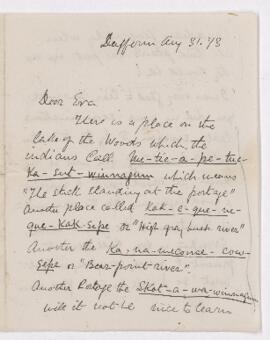 Dufferin Aug 31. 73
Dear Eva
There is a place on the
lake of the Woods which the
indians Call
Ka-sut-winnagum which means
"The stick standing at the portage"
Another place called Kak-e-que-ne-
que-Kak-Sepe or "High gray bush river"
Another the Ka-na-meconse-cow-
Sepe or "Bear-point-river".
Another Portage the Skat-a-wa-winnagum
will it not be nice to learn